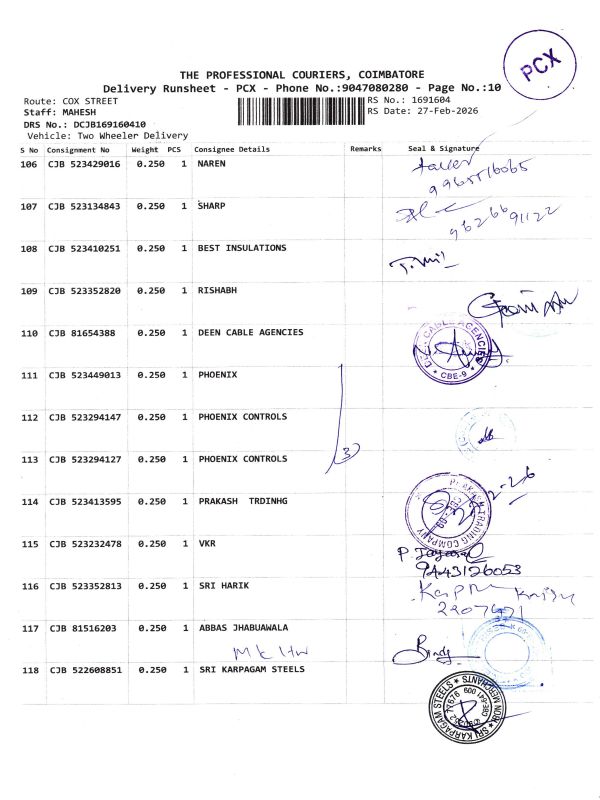 PCX
THE PROFESSIONAL COURIERS, COIMBATORE
Delivery Runsheet - PCX - Phone No.:9047080280 - Page No.:10
Route: COX STREET
RS No.: 1691604
Staff: MAHESH
RS Date: 27-Feb-2026
DRS No.: DCJB169160410
Vehicle: Two Wheeler Delivery
S No Consignment No Weight PCS Consignee Details Remarks Seal & Signature
106 CJB 523429016 0.250 1 NAREN
9965516065
107 CJB 523134843 0.250 1 SHARP
9626691122
108 CJB 523410251 0.250 1 BEST INSULATIONS
109 CJB 523352820 0.250 1 RISHABH
110 CJB 81654388 0.250 1 DEEN CABLE AGENCIES
DEEN CABLE AGENCIES
* CBE-9 *
111 CJB 523449013 0.250 1 PHOENIX
112 CJB 523294147 0.250 1 PHOENIX CONTROLS
113 CJB 523294127 0.250 1 PHOENIX CONTROLS
3
114 CJB 523413595 0.250 1 PRAKASH TRDINHG
PRAKASH TRADING COMPANY
115 CJB 523232478 0.250 1 VKR
9443126053
116 CJB 523352813 0.250 1 SRI HARIK
117 CJB 81516203 0.250 1 ABBAS JHABUAWALA
118 CJB 522608851 0.250 1 SRI KARPAGAM STEELS
SRI KARPAGAM STEELS
IRON MERCHANTS